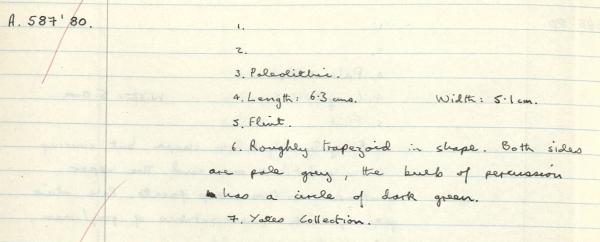 A. 587'80.
1.
2.
3. Paleolithic.
4. Length: 6.3 cms. Width: 5.1 cm.
5. Flint.
6. Roughly trapezoid in shape. Both sides
are pale grey, the bulb of percussion
has a circle of dark green.
7. Yates Collection.